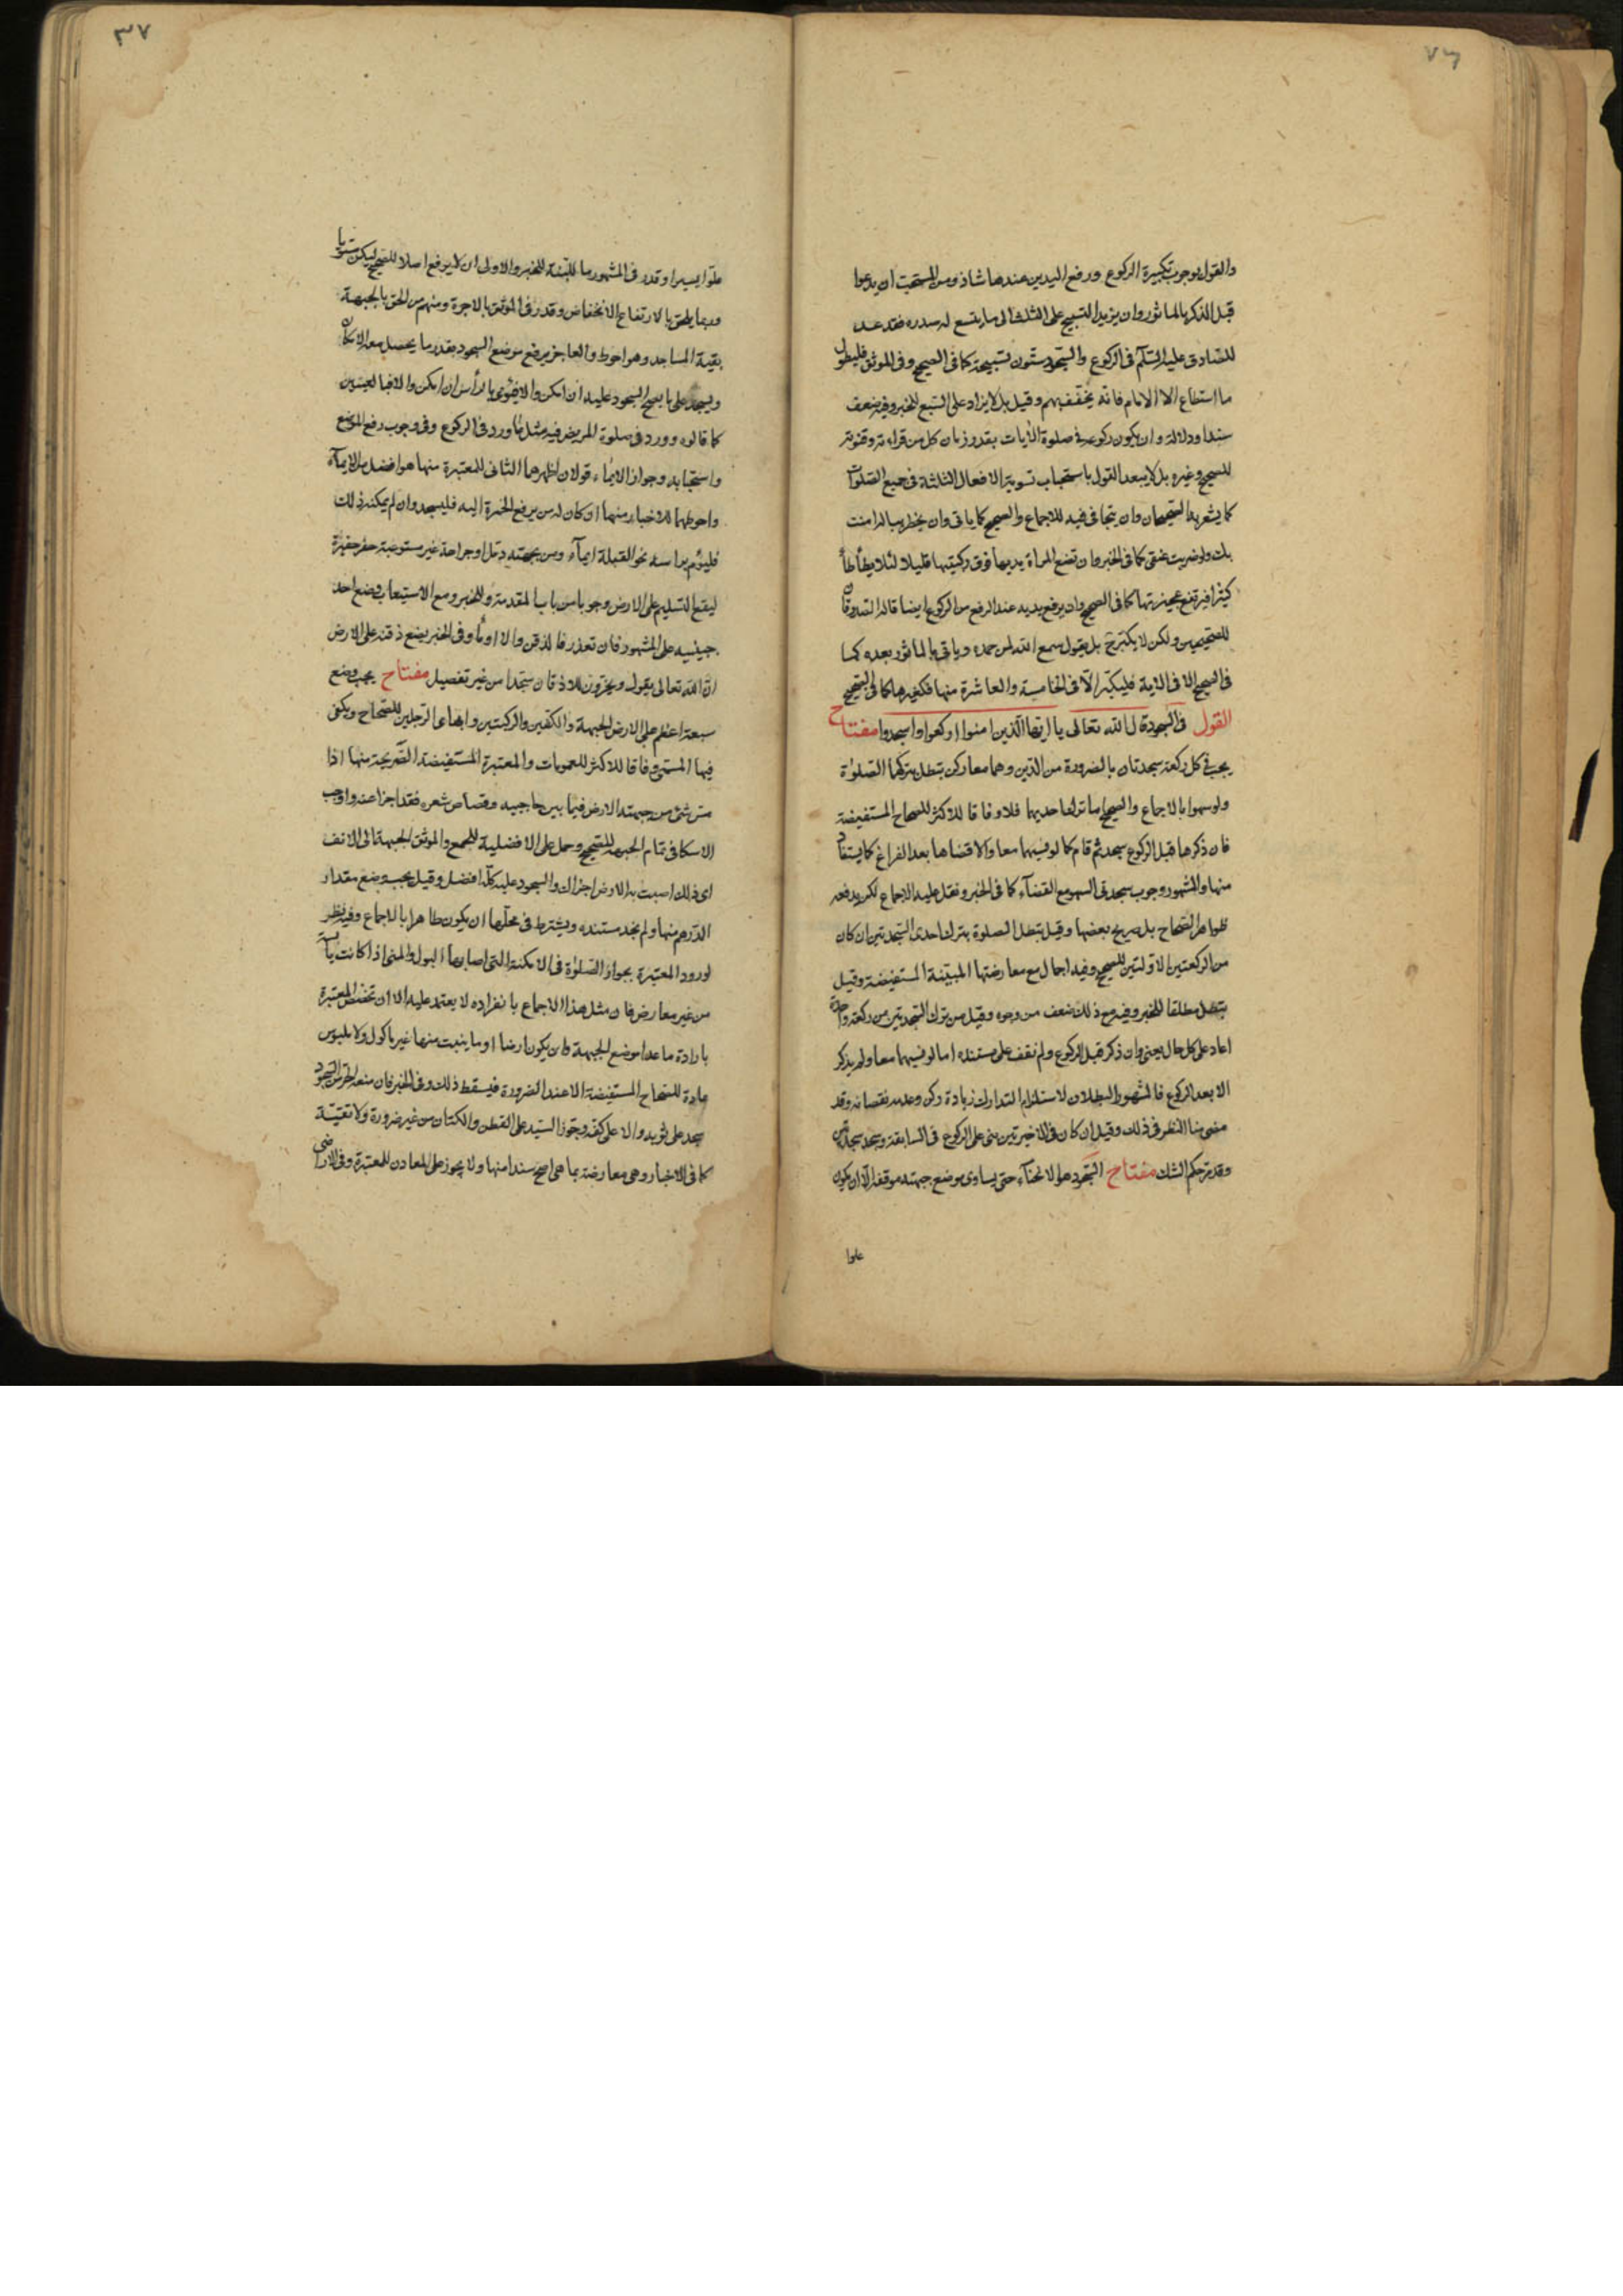 ٧٦
والقول بوجوب تكبيرة الركوع ورفع اليدين عندها شاذ ومن المستحب ان يدعوا
قبل الذكر بالماثور وان يزيد التسبيح على الثلث الى ما يتسع له صدره فقد عد
للصادق عليه السّلم فى الركوع والسّجود ستّون تسبيحة كما فى الصحيح وفى الموثق فليطول
ما استطاع الا الامام فانه يخفف بهم وقيل بل لا يزاد على السبع للخبر وفيه ضعف
سندا ودلالة وان يكون ركوعه فى صلوة الأيات بقدر زمان كل من قراءته وقنوته
للصحيح وغيره بل لا يبعد القول باستحباب تسوية الافعال الثلثة فى جميع الصلوات
كما يشعر به الصحيحان وان يتجافى فيه للاجماع والصحيح كما ياتى وان يخطر بباله امنت
بك ولو ضربت عنقى كما فى الخبر وان تضع المراة يديها فوق ركبتيها قليلا لئلا يطأطأ
كثيرا فيرتفع عجيزتها كما فى الصحيح وان يرفع يديه عند الرفع من الركوع ايضا قاله الصدوقان
للصحيحين ولكن لا يكبّر ح بل يقول سمع اللّه لمن حمده وياتى بالماثور بعده كما
فى الصحيح الا فى الاية فليكبّر الّا فى الخامسة والعاشرة منها فكغيرها كما فى الصحيح
القول فى السّجود قال اللّه تعالى يا ايّها الّذين امنوا اركعوا واسجدوا مفتاح
يجب فى كل ركعة سجدتان بالضرورة من الدّين وهما معا ركن تبطل بتركهما الصلوٰة
ولو سهوا بالاجماع والصحيح اما ترك احديهما فلا وفاقا للاكثر للصحاح المستفيضة
فان ذكرها قبل الركوع سجد ثم قام كما لو نسيهما معا والا قضاها بعد الفراغ كما يستفاد
منها والمشهور وجوب سجدتى السهو مع القضاء كما فى الخبر ونقل عليه الاجماع لكن يدفعه
ظواهر الصحاح بل صريح بعضها وقيل تبطل الصلوة بترك احدى السّجدتين ان كان
من الركعتين الاوّلتين للصحيح وفيه اجمال مع معارضتها المبيّنة المستفيضة وقيل
يبطل مطلقا للخبر وفيه مع ذلك ضعف من وجوه وقيل من ترك السّجدتين من ركعة واحدة
اعاد على كل حال يعنى وان ذكر قبل الركوع ولم نقف على مستنده اما لو نسيهما معا ولم يذكر
الا بعد الركوع فالمشهور البطلان لاستلزام التدارك زيادة ركن وعدمه نقصانه وقد
مضى منا النظر فى ذلك وقيل ان كان فى الاخيرتين بنى على الركوع فى السابقة وسجد سجدتين
وقد مر حكم الشك مفتاح السّجود هو الانحناء حتى يساوى موضع جبهته موقفه الّا ان يكون
علوا
٣٧
علوّا يسيرا وقدر فى المشهور بما للّبنة للخبر والاولى ان لا يرفع اصلا للصحيح ليكن مستويا
وربما يلحق بالارتفاع الانخفاض وقدر فى الموثق بالاجرة ومنهم من الحق بالجبهة
بقية المساجد وهو احوط والعاجز يرفع موضع السجود بقدر ما يحصل معه الامكان
ويسجد على ما يصح السجود عليه ان امكن والا فيؤمى بالرأس ان امكن والا فبالعينين
كما قالوه وورد فى صلوة المريض فيه مثل ما ورد فى الركوع وفى وجوب رفع الموضع
واستحبابه وجواز الايماء قولان اظهرهما الثانى للمعتبرة منها هو افضل من الايماء
واحوطهما للاخبار منها او كان له من يرفع الخمرة اليه فليسجد وان لم يمكنه ذلك
فليؤم براسه نحو القبلة ايماء ومن بجبهته دمّل او جراحة غير مستوعبة حفر حفيرة
ليقع السّليم على الارض وجوبا من باب المقدمة وللخبر ومع الاستيعاب وضع احد
جبينيه على المشهور فان تعذر فالذقن والا اومأ وفى الخبر يضع ذقنه على الارض
انّ اللّه تعالى يقول ويخرّون للاذقان سجّدا من غير تفصيل مفتاح يجب وضع
سبعة اعظم على الارض الجبهة والكفين والركبتين وابهامى الرّجلين للصّحاح ويكفى
فيها المسمّى وفاقا للاكثر للعمومات والمعتبرة المستفيضة الصّريحة منها اذا
مسّ شئ من جبهته الارض فيما بين حاجبيه وقصاص شعره فقد اجزا عنه واوجب
الاسكافى تمام الجبهة للصّحيح وحمل على الافضلية للجمع والموثق الجبهة الى الانف
اى ذلك اصبت به الارض اجزاك والسجود عليه كلّه افضل وقيل يجب وضع مقدار
الدّرهم منها ولم نجد مستنده ويشترط فى محلّها ان يكون طاهرا بالاجماع وفيه نظر
لورود المعتبرة بجواز الصّلوٰة فى الامكنة التى اصابها البول والمنى اذا كانت يابسة
من غير معارض فان مثل هذا الاجماع بانفراده لا يعتمد عليه الا ان تخصّص المعتبرة
بارادة ما عدا موضع الجبهة وان يكون ارضا او ما ينبت منها غير ماكول ولا ملبوس
عادة للصّحاح المستفيضة الا عند الضرورة فيسقط ذلك وفى الخبر فان منعه الحر من السّجود
سجد على ثوبه والا على كفه وجوّز السّيد على القطن والكتان من غير ضرورة ولا تقيّة
كما فى الاخبار وهى معارضة بما هى اصح سندا منها ولا يجوز على المعادن للمعتبرة وفى الاراضى